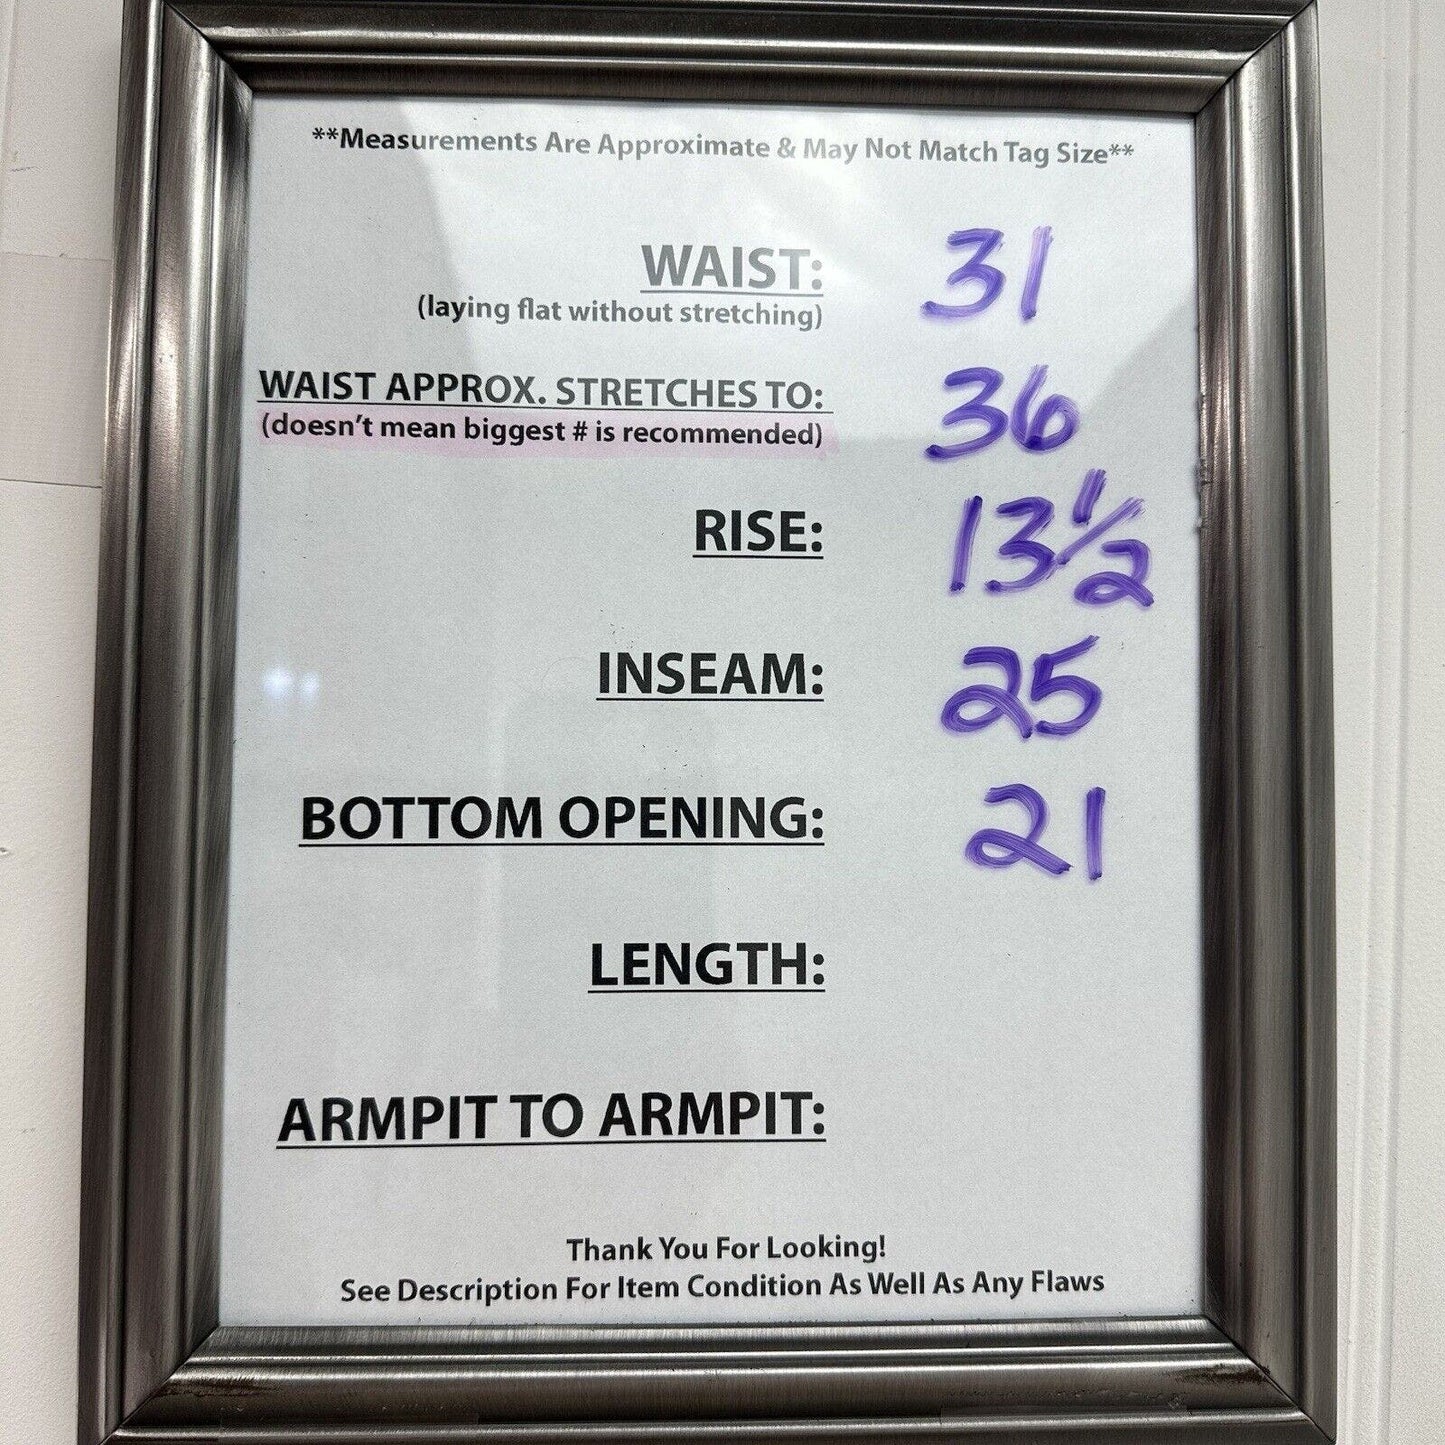 **Measurements Are Approximate & May Not Match Tag Size**
WAIST: 31
(laying flat without stretching)
WAIST APPROX. STRETCHES TO: 36
(doesn't mean biggest # is recommended)
RISE: 13 1/2
INSEAM: 25
BOTTOM OPENING: 21
LENGTH:
ARMPIT TO ARMPIT:
Thank You For Looking!
See Description For Item Condition As Well As Any Flaws